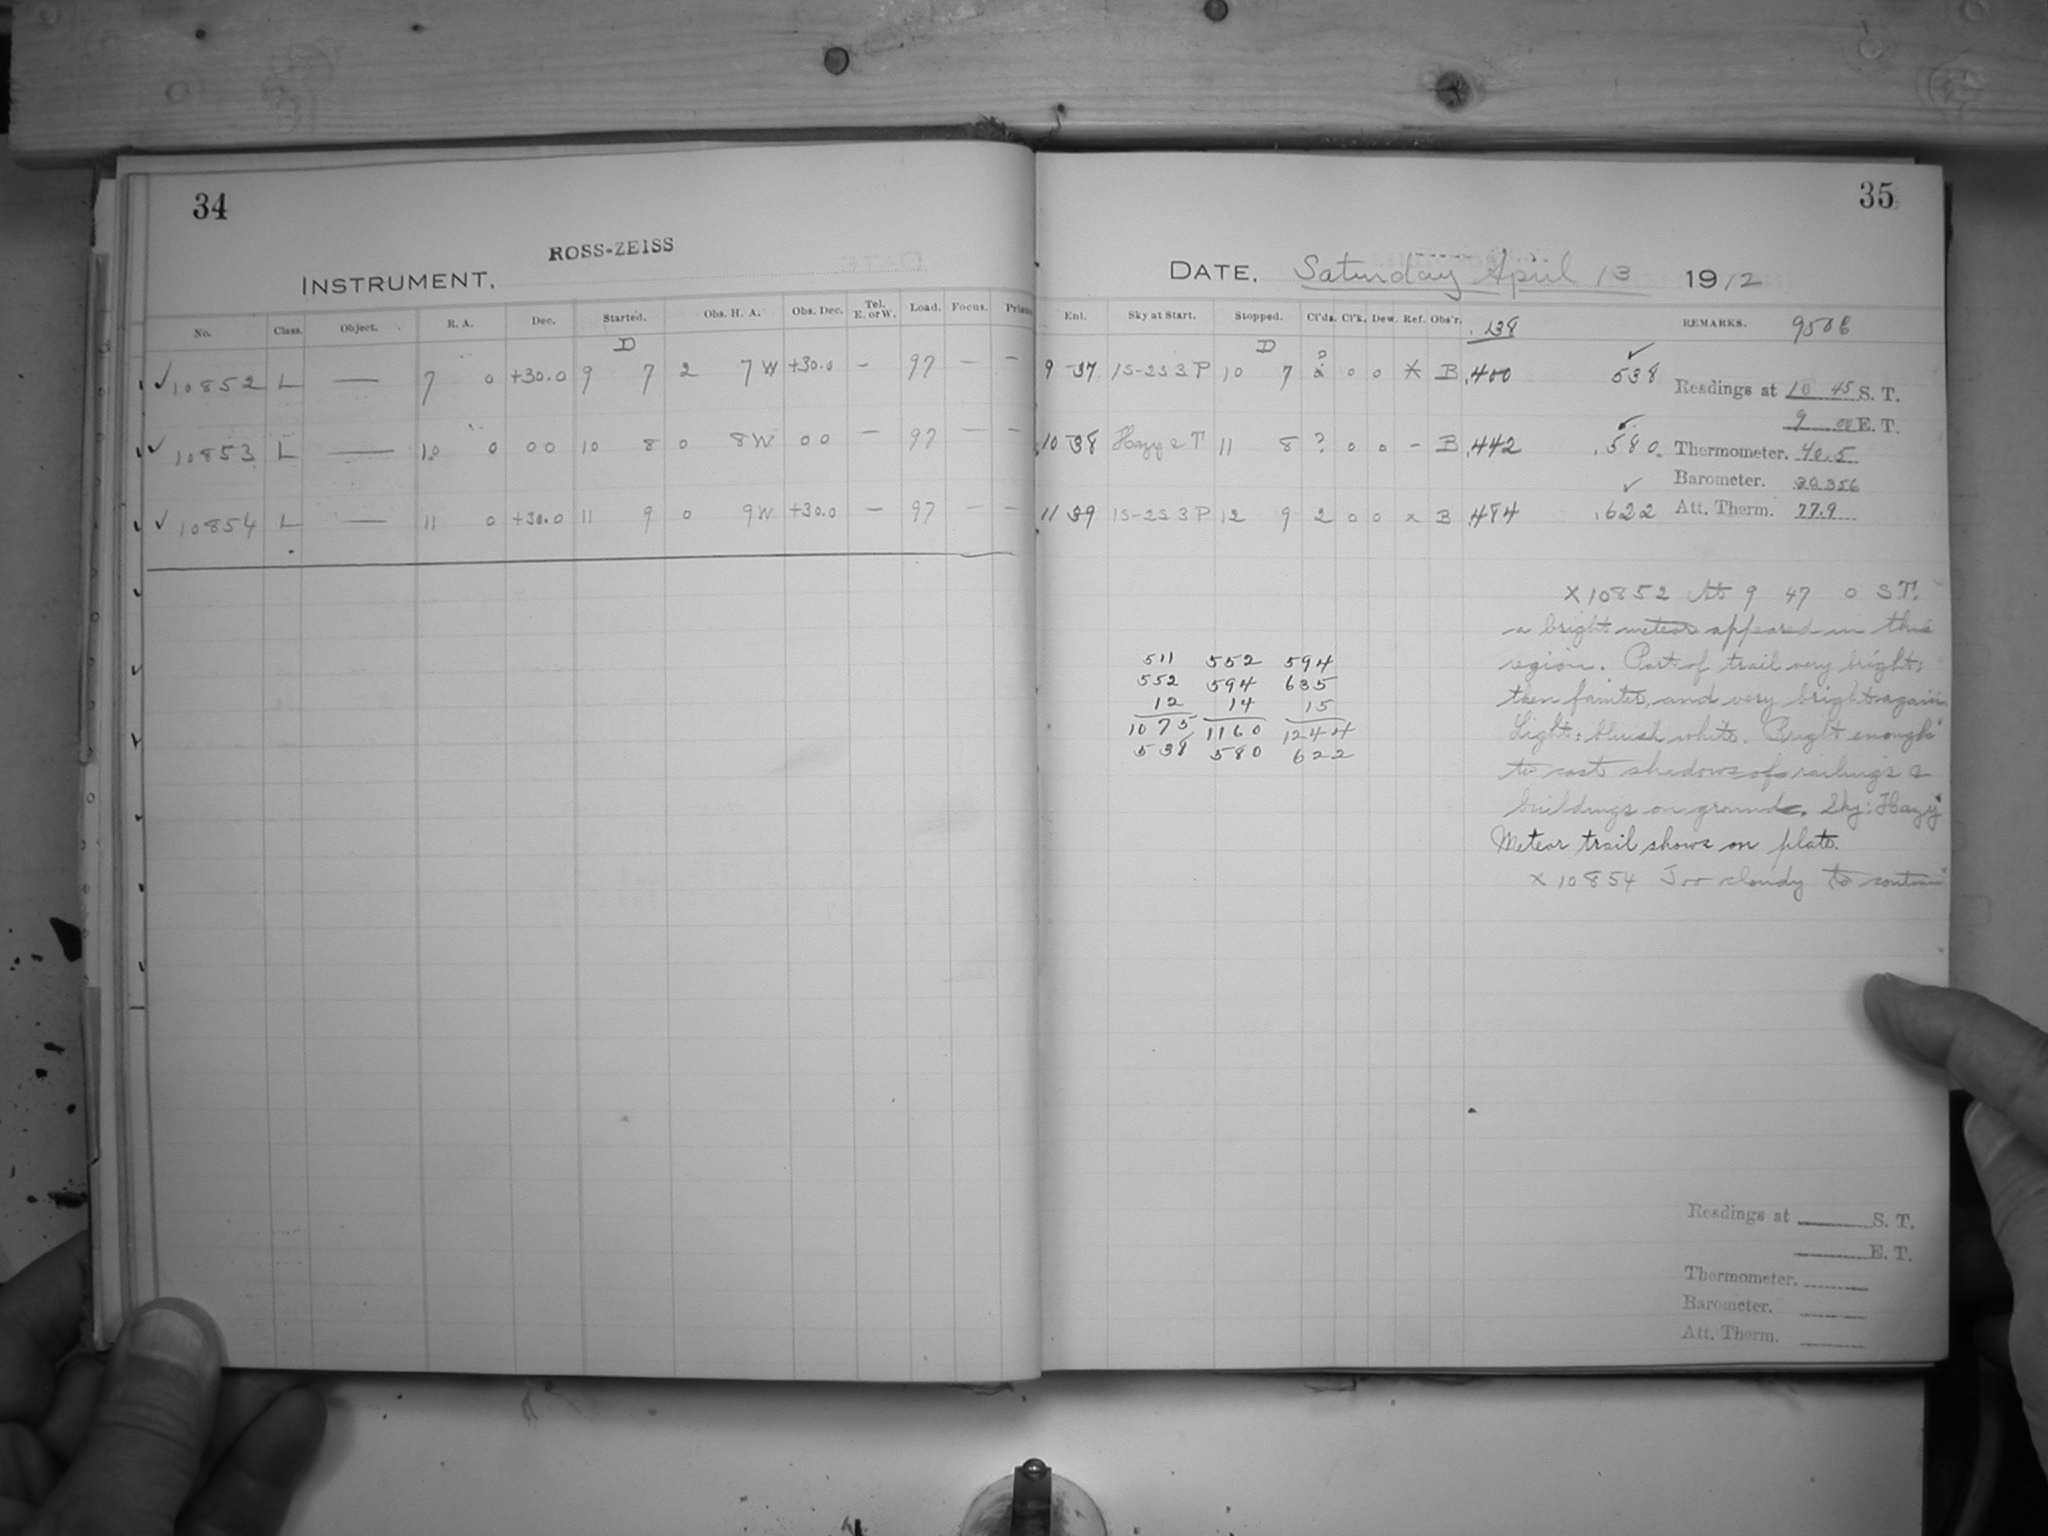 34
ROSS-ZEISS
INSTRUMENT,
No. Class. Object. R. A. Dec. Started. Obs. H. A. Obs. Dec. Tel. E. or W. Load. Focus. Prism
D
✓ 10852 L — 7 0 +30.0 9 7 2 7W +30.0 — 97 — —
✓ 10853 L — 10 0 00 10 8 0 8W 00 — 97 — —
✓ 10854 L — 11 0 +30.0 11 9 0 9W +30.0 — 97 — —
35
DATE, Saturday April 13 1912
Enl. Sky at Start. Stopped. Cl'ds. Cl'k. Dew. Ref. Obs'r. .138 REMARKS. 9506
D
9 37 1S-2S 3P 10 7 ? 0 0 * B .400 538
Readings at 10 45 S. T.
9 00 E. T.
10 38 Hazy 2 T 11 8 ? 0 0 - B .442 .580 Thermometer. 40.5
Barometer. 30.356
11 39 1S-2S 3P 12 9 2 0 0 x B .484 .622 Att. Therm. 77.9
x 10852 At 9 47 0 S.T.
a bright meteor appeared in this
region. Part of trail very bright,
then fainter, and very bright again
Light: bluish white. Bright enough
to cast shadows of railings &
buildings on ground. Sky: Hazy
Meteor trail shows on plate.
x 10854 Too cloudy to continue
511 552 594
552 594 635
12 14 15
1075 1160 1244
538 580 622
Readings at S. T.
E. T.
Thermometer.
Barometer.
Att. Therm.